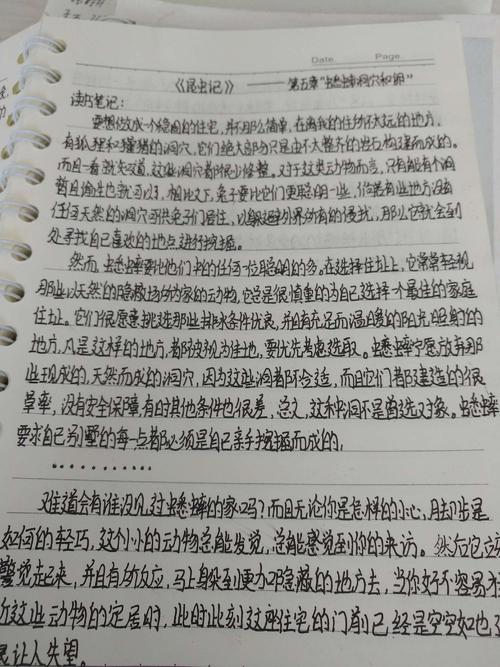 Date.
Page.
《昆虫记》 —— 第五章“蟋蟀洞穴和卵”
读书笔记：
要想做成一个稳固的住宅，并不那么简单，在离我的住所不太远的地方，
有狐狸和獾猪的洞穴，它们绝大部分只是由不太整齐的岩石构建而成的。
而且一看就知道，这些洞穴都很少修整。对于这类动物而言，只有能有个洞
暂且偷生也就可以了，相比之下，兔子要比它们更聪明一些，假若有些地方没有
任何天然的洞穴可供兔子们居住，以躲避外界所有的侵扰，那么它就会到
处寻找自己喜欢的地点进行挖掘。
然而，蟋蟀要比他们中的任何一位聪明的多。在选择住址上，它常常轻视
那些以天然的隐蔽场所为家的动物，它总是很慎重的为自己选择一个最佳的家庭
住址。它们很愿意挑选那些排水条件优良，并且有充足而温暖的阳光照射的
地方，凡是这样的地方，都被视为佳地，要优先考虑选取。蟋蟀宁愿放弃那
些现成的，天然而成的洞穴，因为这些洞都不合适，而且它们都建造的很
草率，没有安全保障，有时其他条件也很差，总之，这种洞不是首选对象。蟋蟀
要求自己别墅的每一点都必须是自己亲手挖掘而成的，
……………
难道会有谁没见过蟋蟀的家吗？而且无论你是怎样的小心，脚步是
如何的轻巧，这个小小的动物总能发觉，总能感觉到你的来访。然后它立
警觉起来，并且有所反应，马上躲到更加隐蔽的地方去，当你好不容易才
近这些动物的定居时，此时此刻这座住宅的门前已经是空空如也了
让人失望。